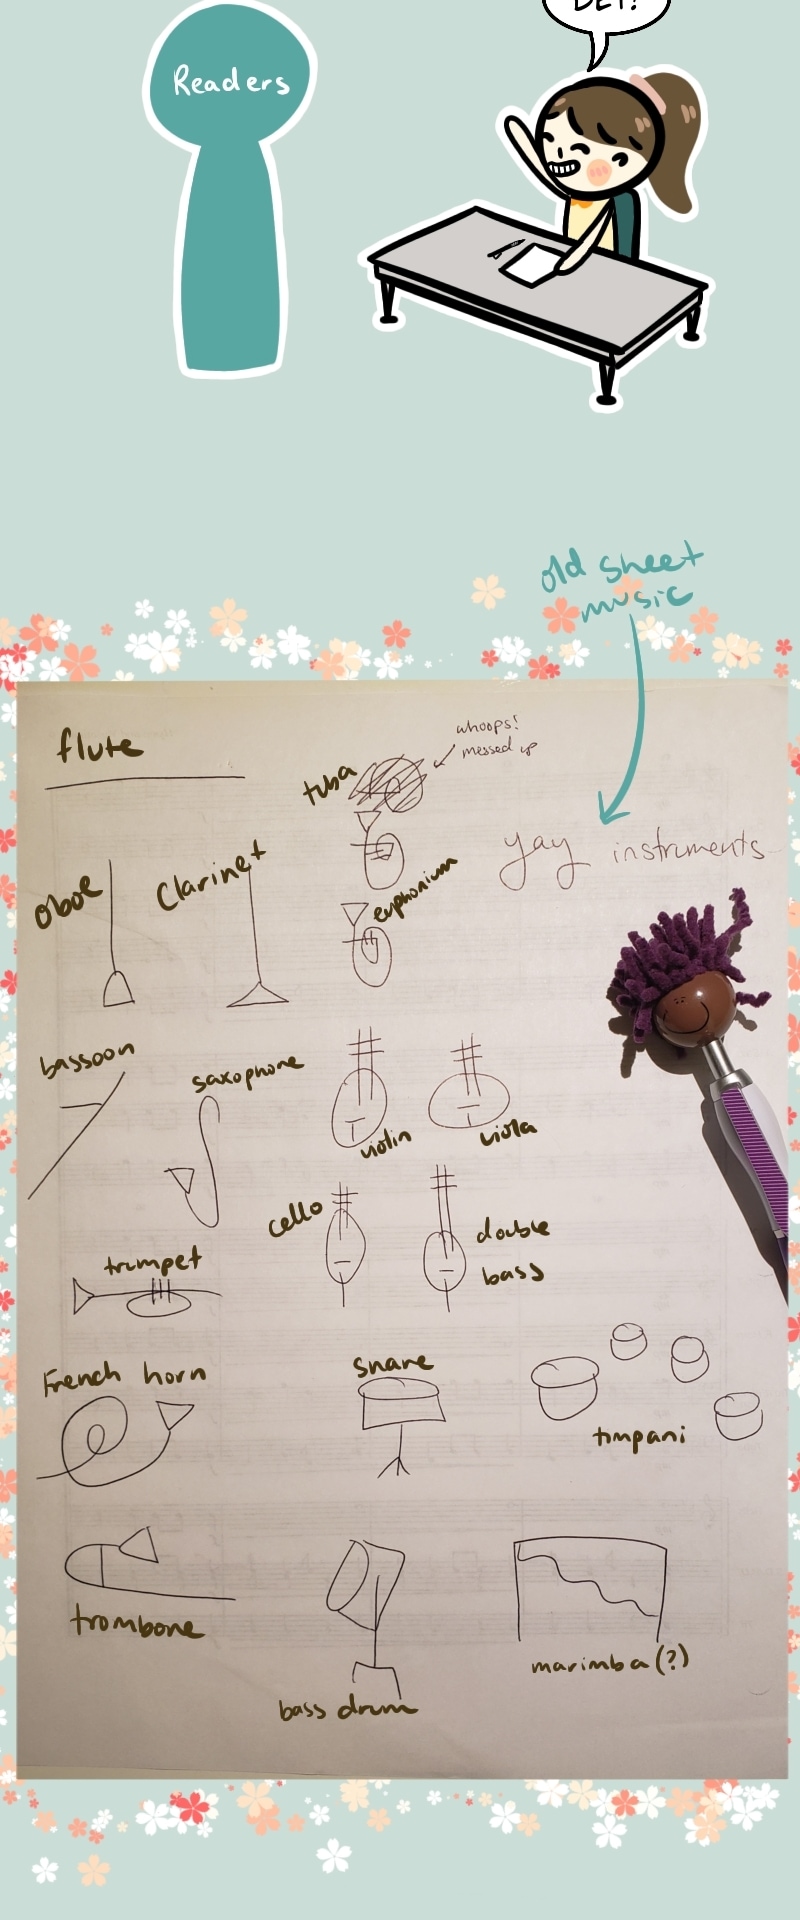 BET!
Readers
old sheet
music
flute
whoops!
messed up
tuba
yay instruments
oboe
Clarinet
euphonium
bassoon
saxophone
violin
viola
cello
double
bass
trumpet
French horn
snare
timpani
trombone
marimba (?)
bass drum